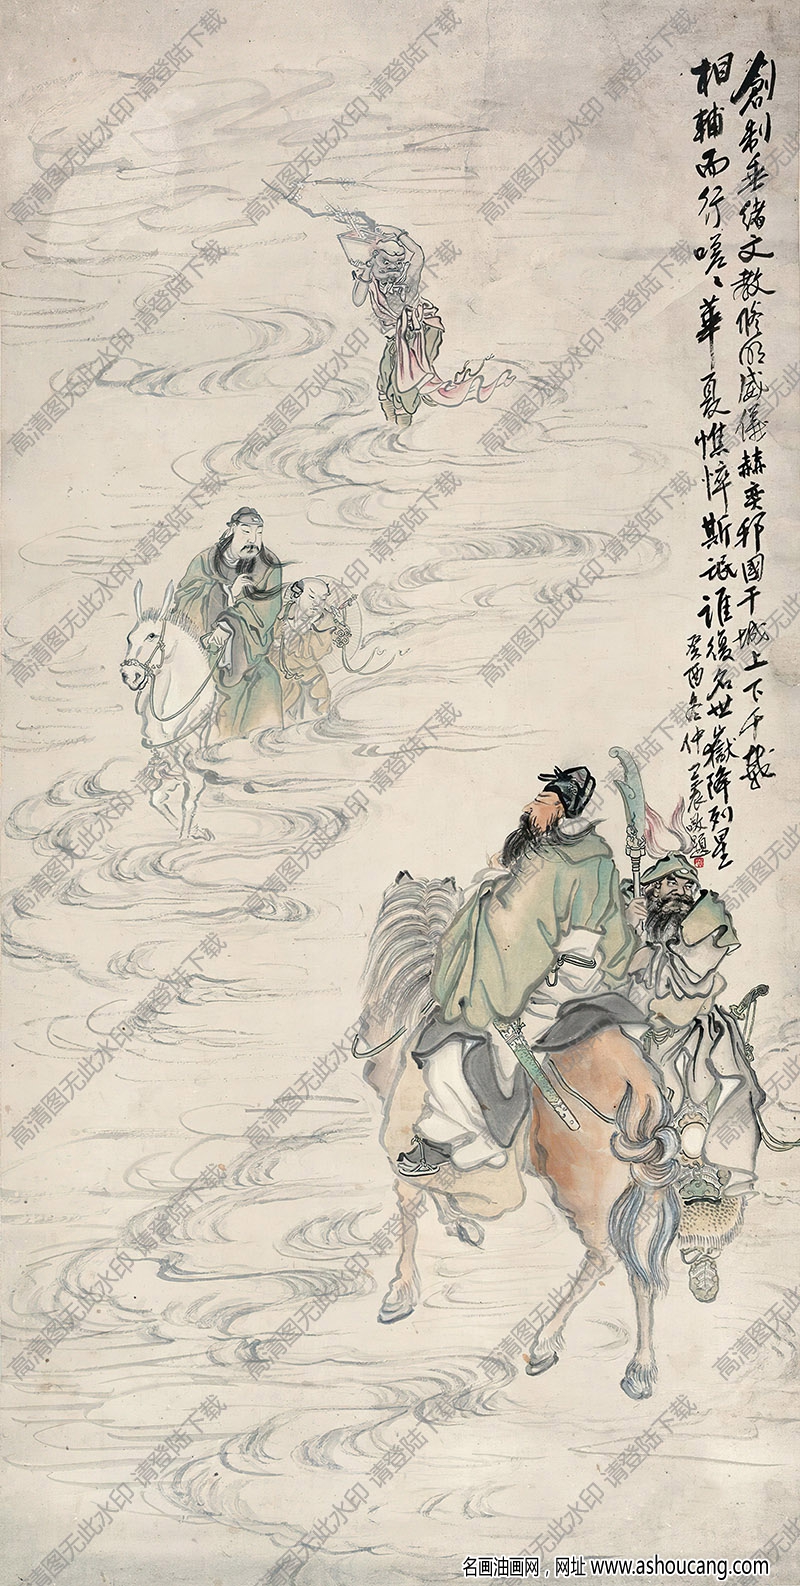 創制垂緒文教修明威儀赫奕邦國干城上下千載
相輔而行嗟〻華夏憔悴斯氓誰復名世嶽降列星
癸酉冬仲王震敬題
高清图无此水印 请登陆下载
名画油画网，网址 www.ashoucang.com